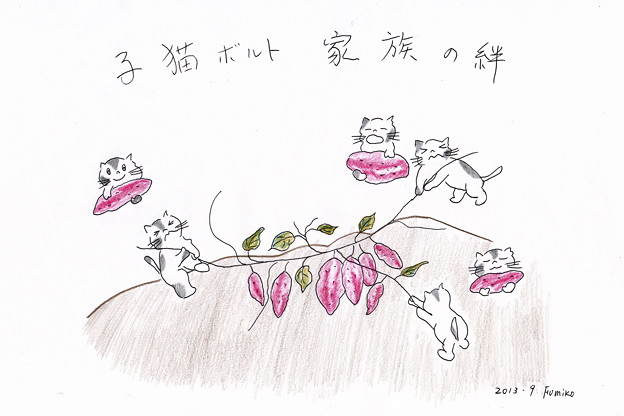 子猫ボルト 家族の絆
2013.9 Fumiko